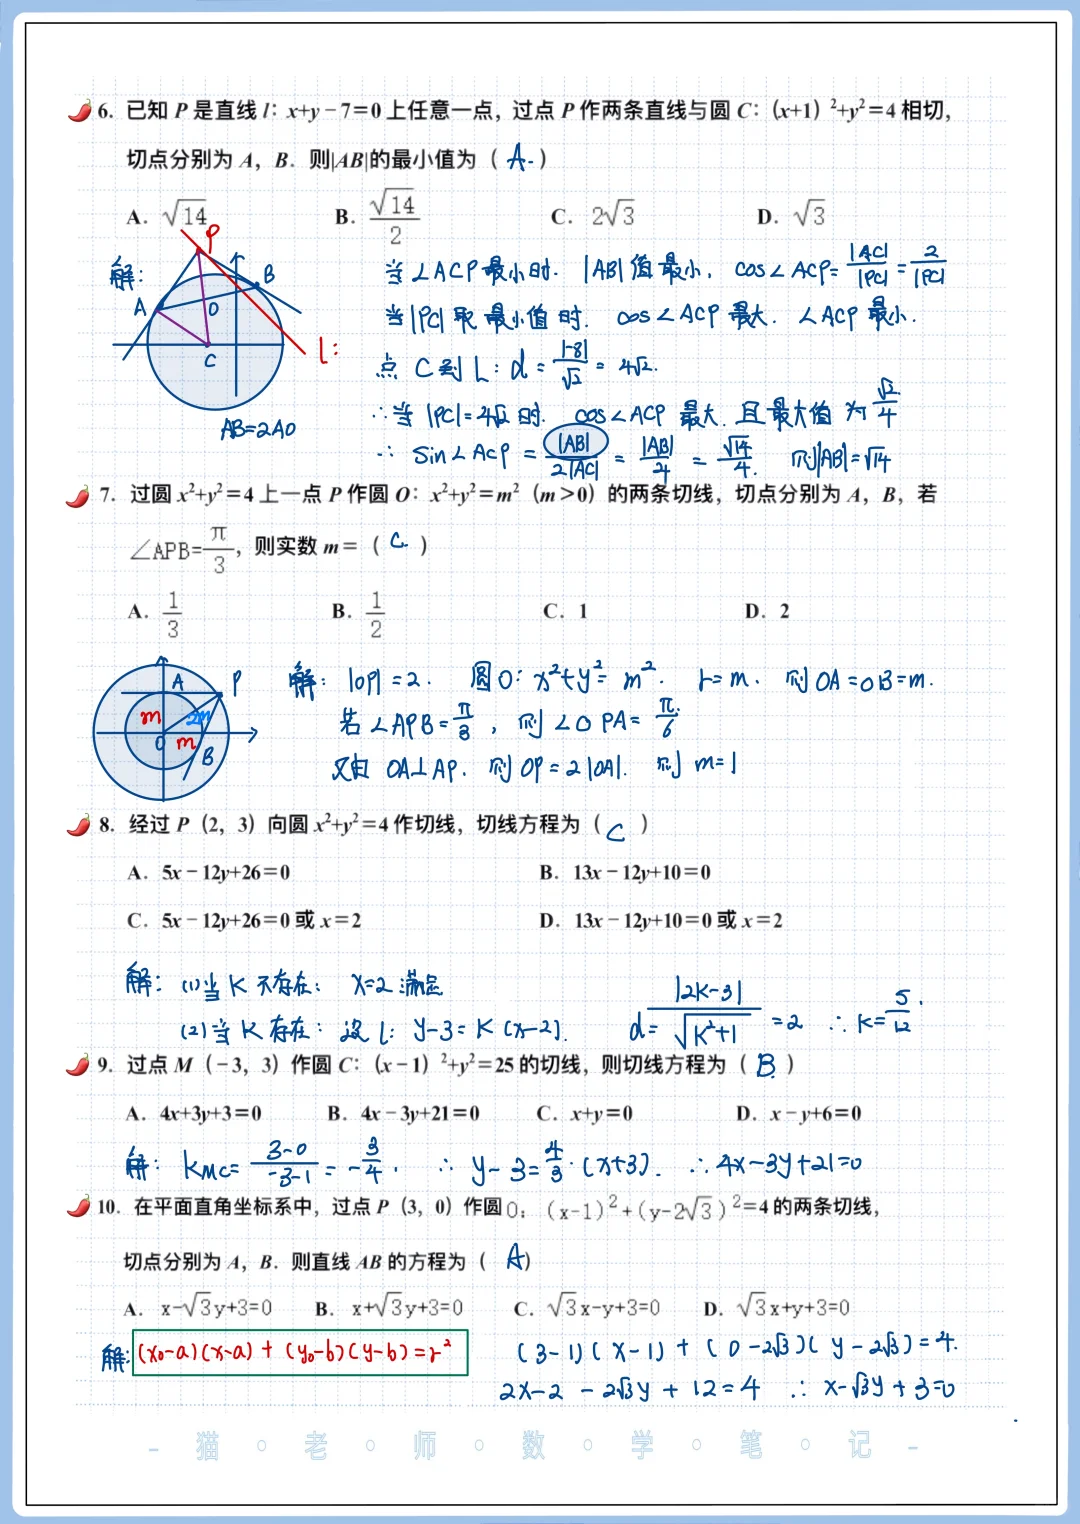 6. 已知 P 是直线 l：x+y－7＝0 上任意一点，过点 P 作两条直线与圆 C：(x+1)²+y²＝4 相切，
切点分别为 A，B．则|AB|的最小值为（ A. ）
A．√14 B．√14/2 C．2√3 D．√3
解：
P
A
B
O
C
l：
AB=2AO
当∠ACP最小时．|AB|值最小．cos∠ACP=|AC|/|PC|=2/|PC|
当|PC|取最小值时．cos∠ACP最大．∠ACP最小．
点C到L：d=|-8|/√2=4√2.
∴当|PC|=4√2时．cos∠ACP最大．且最大值为√2/4
∴ sin∠ACP=|AB|/2|AC|=|AB|/4=√14/4. 则|AB|=√14
7. 过圆 x²+y²＝4 上一点 P 作圆 O：x²+y²＝m²（m＞0）的两条切线，切点分别为 A，B，若
∠APB=π/3，则实数 m＝（ C ）
A．1/3 B．1/2 C．1 D．2
A
P
m
2m
O
m
B
解：|OP|=2. 圆O：x²+y²=m². r=m. 则OA=OB=m.
若∠APB=π/3，则∠OPA=π/6
又由OA⊥AP. 则OP=2|OA|. 则m=1
8. 经过 P（2，3）向圆 x²+y²＝4 作切线，切线方程为（ C ）
A．5x－12y+26＝0 B．13x－12y+10＝0
C．5x－12y+26＝0 或 x＝2 D．13x－12y+10＝0 或 x＝2
解：(1)当K不存在：X=2满足
(2)当K存在：设l：y-3=K(x-2). d=|2K-3|/√K²+1=2 ∴K=5/12.
9. 过点 M（－3，3）作圆 C：(x－1)²+y²＝25 的切线，则切线方程为（ B ）
A．4x+3y+3＝0 B．4x－3y+21＝0 C．x+y＝0 D．x－y+6＝0
解：KMC=3-0/-3-1=-3/4. ∴y-3=4/3·(x+3). ∴4x-3y+21=0
10. 在平面直角坐标系中，过点 P（3，0）作圆O：(x-1)²+(y-2√3)²=4 的两条切线，
切点分别为 A，B．则直线 AB 的方程为（ A ）
A．x-√3y+3=0 B．x+√3y+3=0 C．√3x-y+3=0 D．√3x+y+3=0
解：(x₀-a)(x-a)+(y₀-b)(y-b)=r² (3-1)(x-1)+(0-2√3)(y-2√3)=4.
2x-2-2√3y+12=4 ∴x-√3y+3=0
- 猫·老·师·数·学·笔·记 -